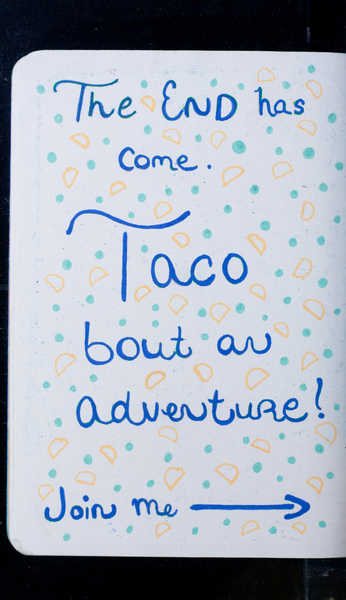 The END has
come.
Taco
bout an
adventure!
Join me →